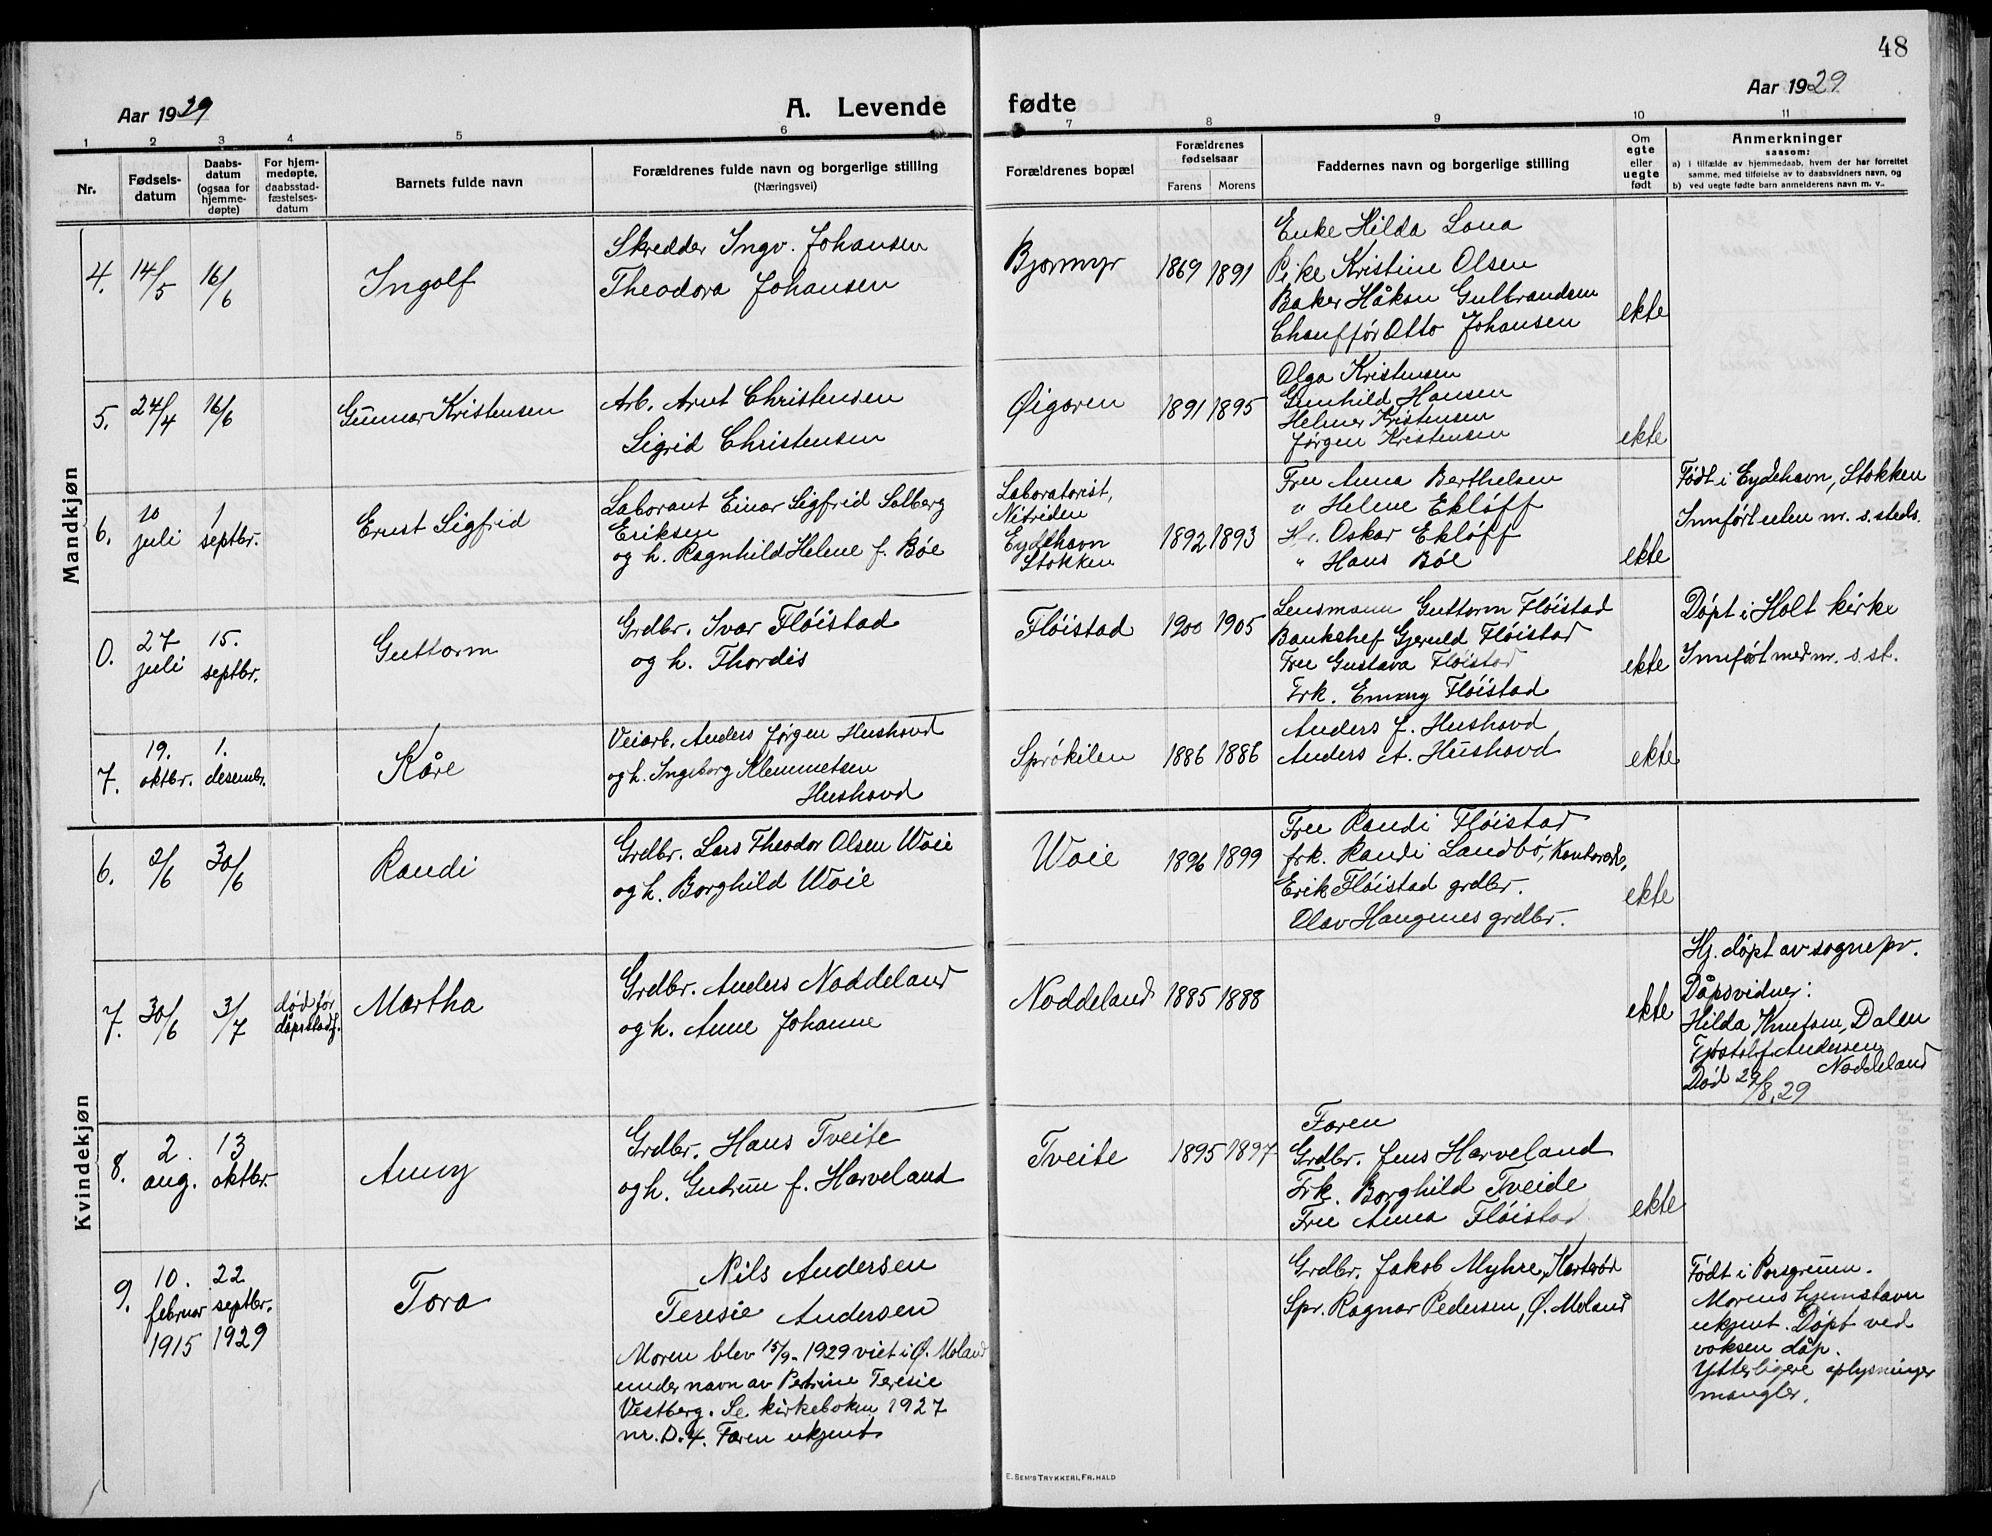 48
Aar 1929
A. Levende fødte
Aar 1929
1 2 3 4 5 6 7 8 9 10 11
Nr.
Fødsels-
datum
Daabs-
datum
(ogsaa for
hjemme-
døpte)
For hjem-
medøpte,
daabsstad-
fæstelses-
datum
Barnets fulde navn
Forældrenes fulde navn og borgerlige stilling
(Næringsvei)
Forældrenes bopæl
Forældrenes
fødselsaar
Farens Morens
Faddernes navn og borgerlige stilling
Om
egte
eller
uegte
født
Anmerkninger
saasom:
a) i tilfælde av hjemmedaab, hvem der har forrettet
samme, med tilføielse av to daabsvidners navn, og
b) ved uegte fødte barn anmelderens navn m. v..
Mandkjøn
4. 14/5 16/6 Ingolf
Skredder Ingv. Johansen
Theodora Johansen
Bjormyr 1869 1891
Enke Hilda Lona
Pike Kristine Olsen
Baker Håkon Gulbrandsen
Chauffør Otto Johansen
ekte
5. 24/4 16/6 Gunnar Kristensen
Arb. Arnt Christensen
Sigrid Christensen
Øigaren 1891 1895
Olga Kristensen
Gunhild Hansen
Helmer Kristensen
Jørgen Kristensen
ekte
6. 10 juli 1 septbr. Ernst Sigfrid
Laborant Einar Sigfrid Solberg
Eriksen
og h. Ragnhild Helene f. Bøe
Laboratorist,
Nitriden
Eydehavn
Stokken
1892 1893
Fru Anna Berthelsen
" Helene Ekløff
Hr. Oskar Ekløff
" Hans Bøe
ekte
Født i Eydehavn, Stokken
Innført uten nr. s. steds.
0. 27 juli 15. septbr. Guttorm
Grdbr. Ivar Fløistad
og h. Thordis
Fløistad 1900 1905
Lensmann Guttorm Fløistad
Bankchef Gjeruld Fløistad
Fru Gustava Fløistad
Frk. Emmy Fløistad
ekte
Døpt i Holt kirke
Innført med nr. s. st.
7. 19. oktbr. 1. desembr. Kåre
Veiarb. Anders Jørgen Hushovd
og h. Ingeborg Klemmetsen
Hushovd
Sprøkilen 1886 1886
Anders J. Hushovd
Anders A. Hushovd
ekte
Kvindekjøn
6. 2/6 30/6 Randi
Grdbr. Lars Theodor Olsen Woie
og h. Borghild Woie
Woie 1896 1899
Fru Randi Fløistad
frk. Randi Landbø,
Erik Fløistad grdbr.
Olav Haugenes grdbr.
ekte
7. 30/6 3/7
død før
dåpsstadf.
Martha
Grdbr. Anders Noddeland
og h. Anne Johanne
Noddeland 1885 1888
ekte
Hj. døpt av sognepr.
Dåpsvidner:
Hilda Knutsen, Dalen
Tjøstolf Andersen
Noddeland
Død 29/8.29
8. 2. aug. 13 oktbr. Anny
Grdbr. Hans Tveite
og h. Gudrun f. Harveland
Tveite 1895 1897
Faren
Grdbr. Jens Harveland
Frk. Borghild Tveide
Fru Anna Fløistad
ekte
9. 10. februar 1915 22 septbr. 1929 Tora
Nils Andersen
Teresie Andersen
Moren blev 15/9-1929 viet i Ø. Moland
under navn av Petrine Teresie
Vestberg. Se kirkeboken 1927
nr. D.4. Faren ukjent
Grdbr. Jakob Myhre,
Spr. Ragnar Pedersen, Ø. Moland
Født i Porsgrunn.
Morens hjemstavn
ukjent. Døpt ved
voksen dåp.
Ytterligere oplysninger
mangler.
E. SEM'S TRYKKERI, FR.HALD